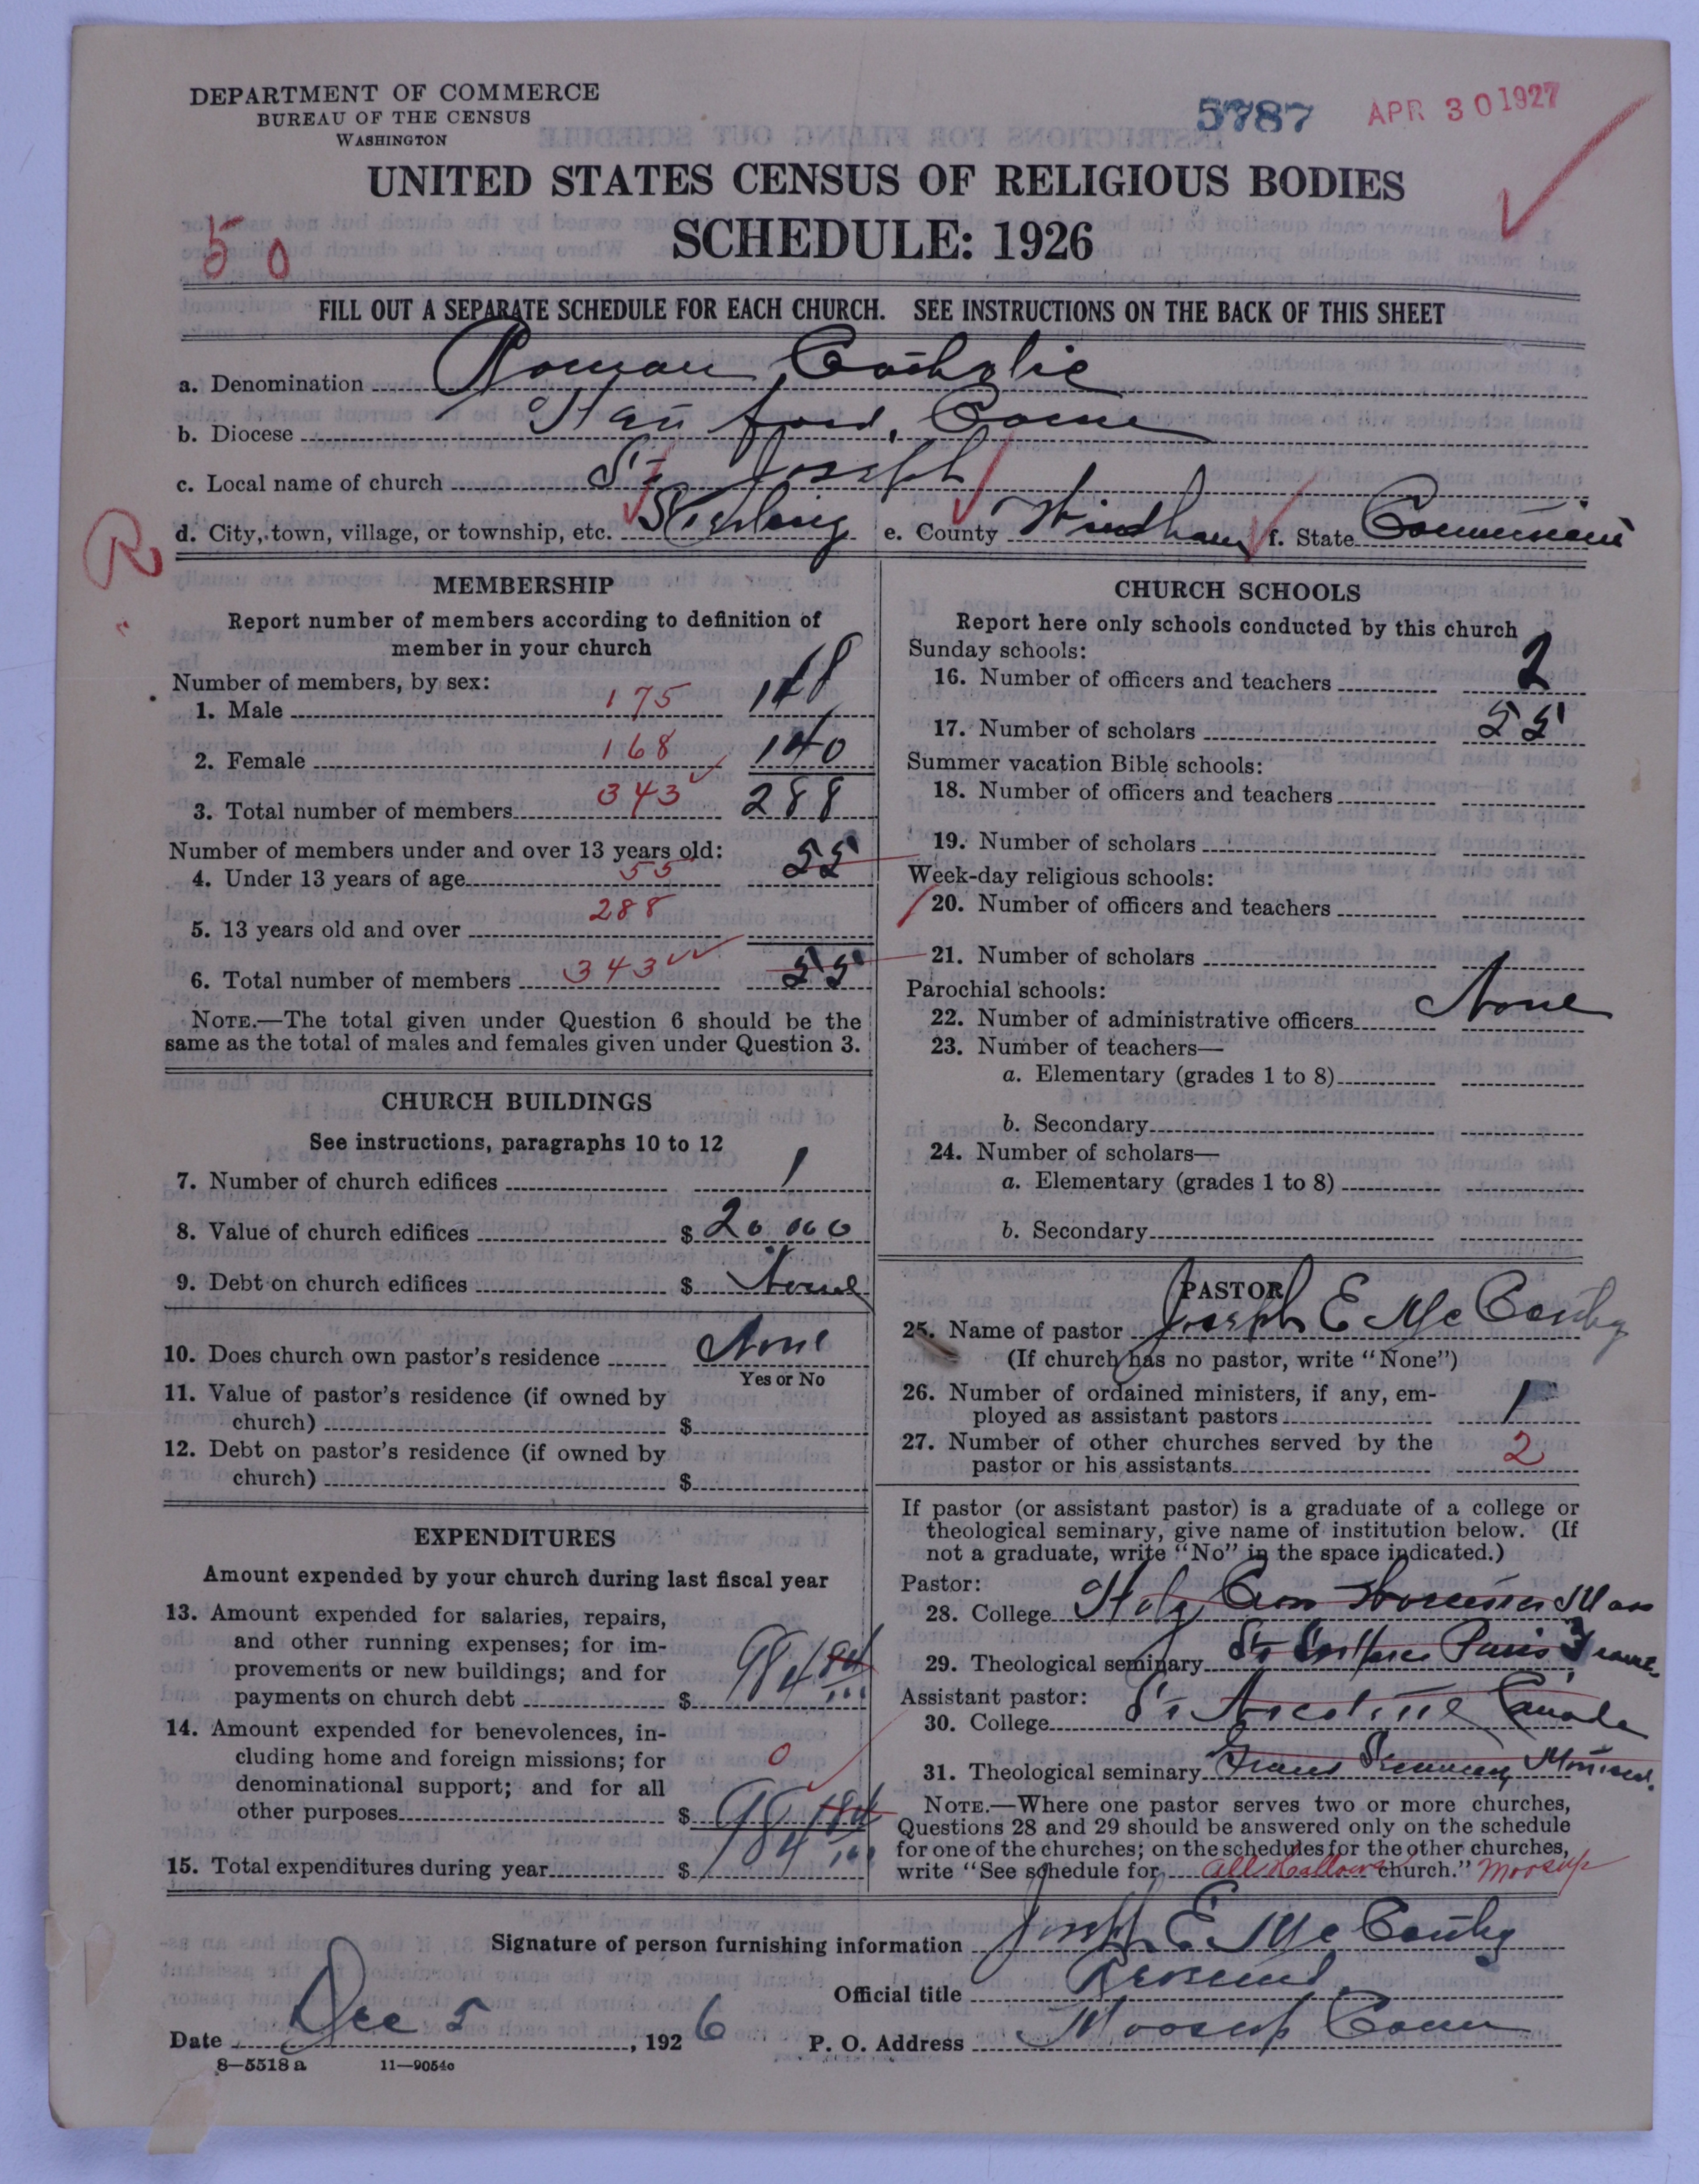 DEPARTMENT OF COMMERCE
BUREAU OF THE CENSUS
WASHINGTON
5787 APR 30 1927
UNITED STATES CENSUS OF RELIGIOUS BODIES
SCHEDULE: 1926
50
FILL OUT A SEPARATE SCHEDULE FOR EACH CHURCH. SEE INSTRUCTIONS ON THE BACK OF THIS SHEET
a. Denomination Roman Catholic
b. Diocese Hartford, Conn
c. Local name of church St Joseph
d. City, town, village, or township, etc. Sterling e. County Windham f. State Connecticut
R
MEMBERSHIP
Report number of members according to definition of
member in your church
Number of members, by sex:
1. Male 175 148
2. Female 168 140
3. Total number of members 343 288
Number of members under and over 13 years old:
4. Under 13 years of age 55 55
5. 13 years old and over 288
6. Total number of members 343 55
NOTE.—The total given under Question 6 should be the
same as the total of males and females given under Question 3.
CHURCH BUILDINGS
See instructions, paragraphs 10 to 12
7. Number of church edifices 1
8. Value of church edifices $ 20 000
9. Debt on church edifices $ None
10. Does church own pastor's residence None
Yes or No
11. Value of pastor's residence (if owned by
church) $
12. Debt on pastor's residence (if owned by
church) $
EXPENDITURES
Amount expended by your church during last fiscal year
13. Amount expended for salaries, repairs,
and other running expenses; for im-
provements or new buildings; and for
payments on church debt $ 984
14. Amount expended for benevolences, in-
cluding home and foreign missions; for 0
denominational support; and for all
other purposes $
15. Total expenditures during year $ 984
CHURCH SCHOOLS
Report here only schools conducted by this church
Sunday schools:
16. Number of officers and teachers 2
17. Number of scholars 55
Summer vacation Bible schools:
18. Number of officers and teachers
19. Number of scholars
Week-day religious schools:
20. Number of officers and teachers
21. Number of scholars
Parochial schools:
22. Number of administrative officers None
23. Number of teachers—
a. Elementary (grades 1 to 8)
b. Secondary
24. Number of scholars—
a. Elementary (grades 1 to 8)
b. Secondary
PASTOR
25. Name of pastor Joseph E McCarthy
(If church has no pastor, write "None")
26. Number of ordained ministers, if any, em-
ployed as assistant pastors 1
27. Number of other churches served by the
pastor or his assistants 2
If pastor (or assistant pastor) is a graduate of a college or
theological seminary, give name of institution below. (If
not a graduate, write "No" in the space indicated.)
Pastor:
28. College Holy Cross Worcester Mass
29. Theological seminary St Sulpice Paris France
Assistant pastor:
30. College St Canada
31. Theological seminary Grand Seminary Montreal
NOTE.—Where one pastor serves two or more churches,
Questions 28 and 29 should be answered only on the schedule
for one of the churches; on the schedules for the other churches,
write "See schedule for All Hallows church." Moosup
Signature of person furnishing information Joseph E. McCarthy
Official title
Date Dec 5, 1926 P. O. Address Moosup Conn
8—5518 a 11—9054c